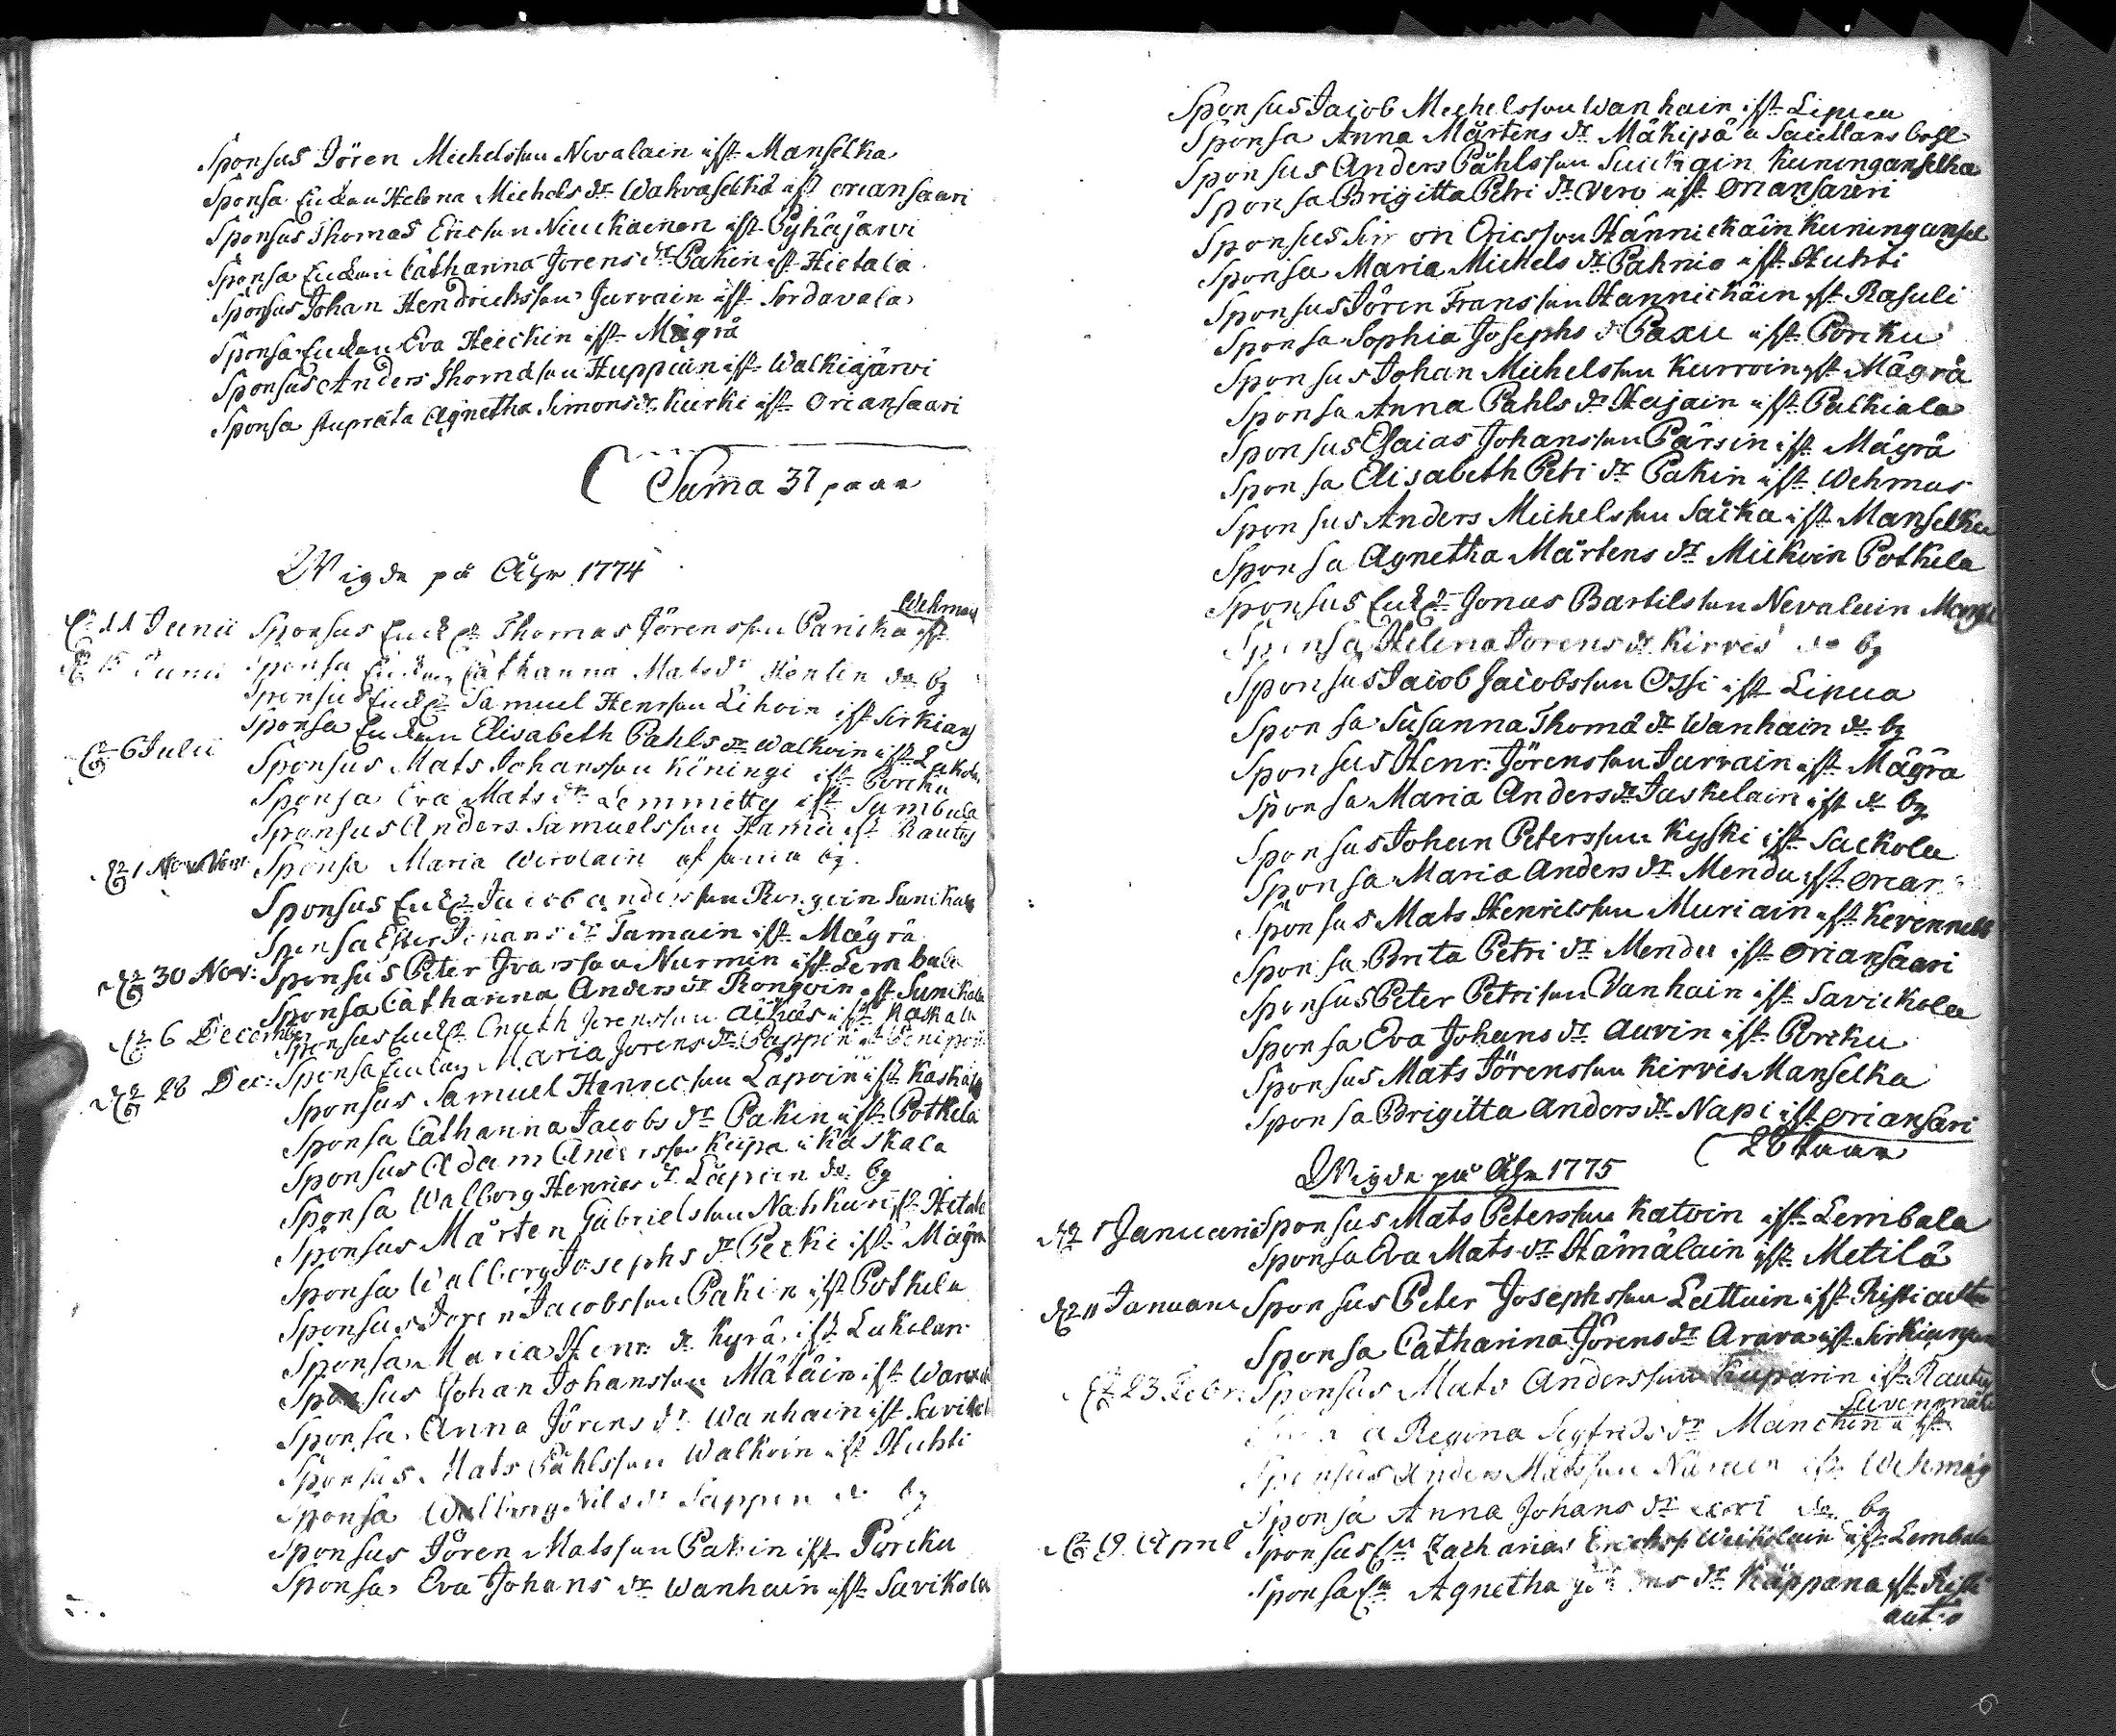 Sponsus Jören Michelsson Nevalain ifst Manselka
Sponsa Enckan Helena Michels dr Wahvaselkä ifst oriansaari
Sponsus Thomas Ericsson Nieuckainen ifst Pyhäjärvi
Sponsa Enckan Catharina Jörens dr Pakin ifst Hietala
Sponsus Johan Hendrichsson Jurvain ifst Sordavala
Sponsa Enckan Eva Heickin ifst Mägrä
Sponsus Anders Thomasson Huppoin ifst Walkiajärvi
Sponsa stuprata Agnetha Simons dr Kurki ifst Oriansaari
Suma 37 paar
Wigde på Åhr 1774
d: 11 Junii Sponsus Enckl: Thomas Jörensson Paricka ifst Wehmas
d: 15 Junii Sponsa Enckan Catharina Mats dr Hentin do by
Sponsus Enckl: Samuel Hensson Lihoin ifst Sirkians
Sponsa Enckan Elisabeth Pahls dr Walkoin ifst Lukola
d: 6 Julii Sponsus Mats Johansson Kiningi ifst Porcku
Sponsa Eva Mats dr Lemmetty ifst Sumbula
Sponsus Anders Samuelsson Hama ifst Rautus
d: 1 Novebr: Sponsa Maria Wirolain af sama by.
Sponsus Enckl: Jacob Andersson Rongoin Sunikala
Sponsa Ester Johans dr Tamain ifst Mägrä
d: 30 Nov: Sponsus Peter Ivarsson Nurmin ifst Lembala
Sponsa Catharina Anders dr Rongoin ifst Sunikala
d: 6 December Sponsus Enckl: Cnuth Jörensson Äikäs ifst Kaskala
Sponsa Enckan Maria Jorens dr Pappin ifst
d: 28 Dec: Sponsus Samuel Henricsson Läpoin ifst Kaskala
Sponsa Catharina Jacobs dr Pakin ifst Potkela
Sponsus Adam Andersson Kiipa i Kaskala
Sponsa Walborg Henrics dr Läpoin do by
Sponsus Mårten Gabrielsson Nahkuri ifst Hietala
Sponsa Walborg Josephs dr Perki ifst Mägrä
Sponsus Jören Jacobsson Pakin ifst Potkela
Sponsa Maria Henr: dr Kyrä ifst Lukolan
Sponsus Johan Johansson Mätäin ifst
Sponsa Anna Jörens dr Wanhain ifst Savikol
Sponsus Mats Påhlsson Walkoin ifst Huhti
Sponsa Walborg Nils dr Sappin do by
Sponsus Jören Matsson Pakin ifst Porcku
Sponsa Eva Johans dr Wanhain ifst Savikola
Sponsus Jacob Michelsson Wanhain ifst Lipua
Sponsa Anna Mårtens dr Mäkipä a
Sponsus Anders Påhlsson Suickain Kuninganselka
Sponsa Brigitta Petri dr Vero ifst Oriansaari
Sponsus Simon Ericsson Hännickäin Kuningansel
Sponsa Maria Michels dr Pahnio ifst Huhti
Sponsus Jören Fransson Hannickäin ifst Rasuli
Sponsa Sophia Josephs dr Paxu ifst Porcku
Sponsus Johan Michelsson Kurvoin ifst Mägrä
Sponsa Anna Pahls dr Hajain ifst Palkiala
Sponsus Esaias Johansson Pärsin ifst Mägrä
Sponsa Elisabeth Petri dr Pakin ifst Wehmas
Sponsus Anders Michelsson Säkä ifst Manselka
Sponsa Agnetha Mårtens dr Mickoin Potkela
Sponsus Enckl: Jonas Bartilsson Nevalain Mansel
Sponsa Helena Jorens dr Kirves do by
Sponsus Jacob Jacobsson Ossi ifst Lipua
Sponsa Susanna Thoma dr Wanhain do by
Sponsus Henr: Jörensson Jurvain ifst Mägrä
Sponsa Maria Anders dr Juskelain ifst do by
Sponsus Johan Petersson Kyski ifst Sackola
Sponsa Maria Anders dr Mendu ifst Orian
Sponsus Mats Henricsson Muriain ifst Kevennells
Sponsa Brita Petri dr Mendu ifst Oriansaari
Sponsus Peter Petrisson Vanhain ifst Savickola
Sponsa Eva Johans dr Auvin ifst Porcku
Sponsus Mats Jörensson Kirvis Manselka
Sponsa Brigitta Anders dr Napi ifst Oriansari
26 Paar
Wigde på Åhr 1775
d: 1 Januarii Sponsus Mats Petersson Katoin ifst Lembala
Sponsa Eva Mats dr Hämäläin ifst Metilä
d: 11 Januari Sponsus Peter Josephsson Lattuin ifst Ristiautto
Sponsa Catharina Jörens dr Arava ifst Sirkiansari
d: 23 Febr: Sponsus Mats Andersson Kuparin ifst Rautus
Regina Sigfrids dr Manchin ifst Suvenmäki
Sponsus Anders Matsson ifst Wehmas
Sponsa Anna Johans dr do by
d: 9 April Sponsus En: Zacharias Erichss Weikolain ifst Lembala
Sponsa En: Agnetha dr Käppana ifst Risti
autio